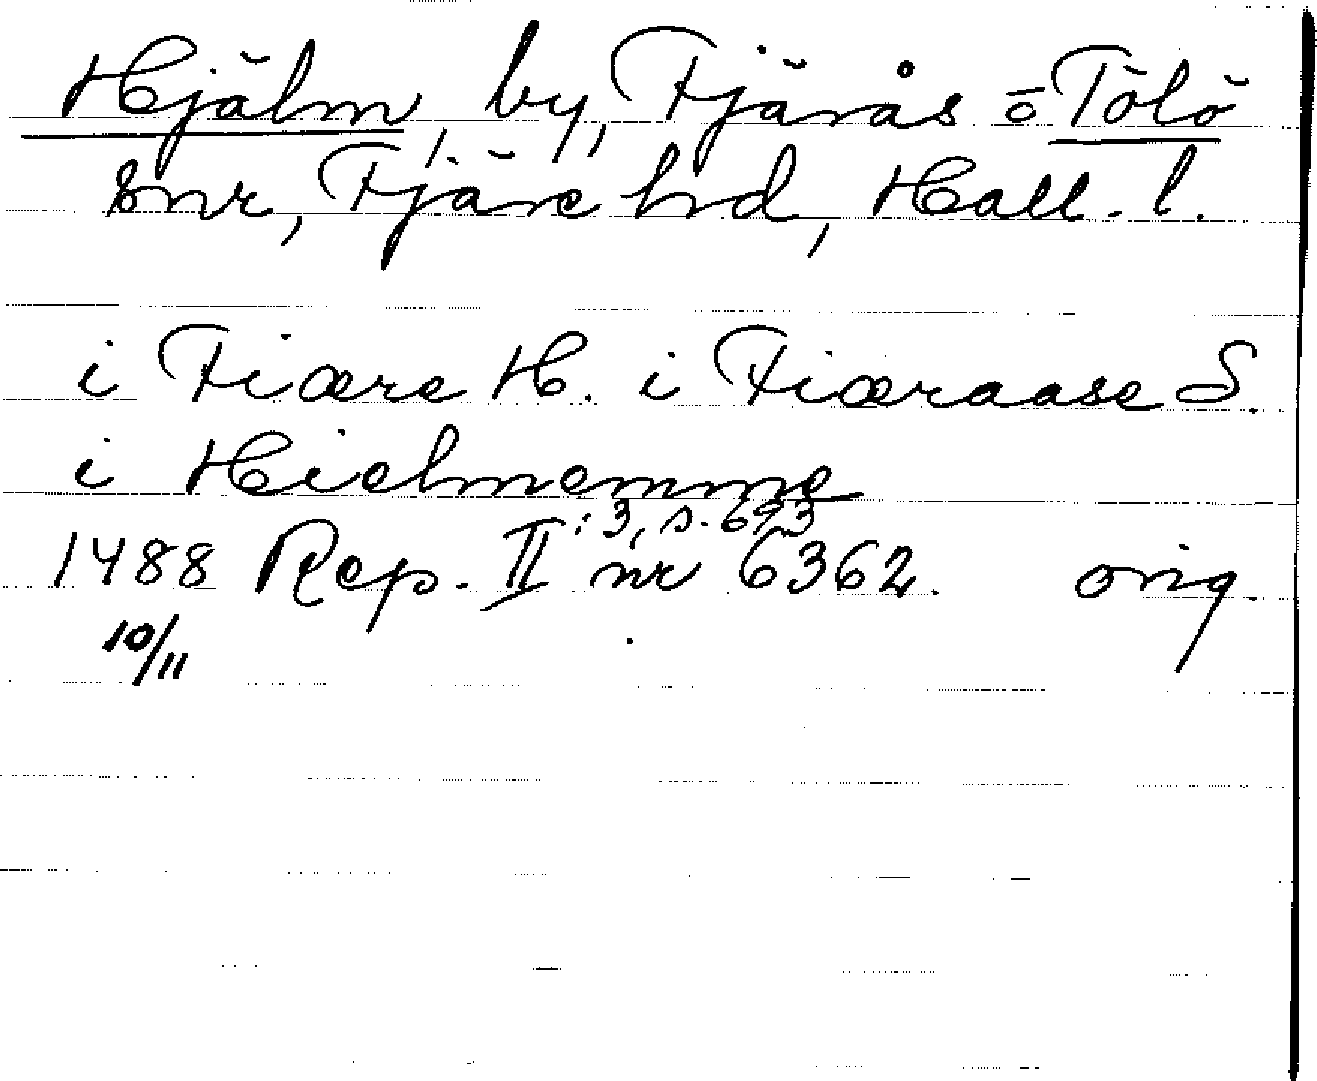 Hjälm, by, Fjärås o Tölö
snr, Fjäre hd, Hall. l.
i Fiære H. i Fiæraase S.
i Hielmemme
1488 Rep. II:3, s. 693 nr 6362. orig.
10/11